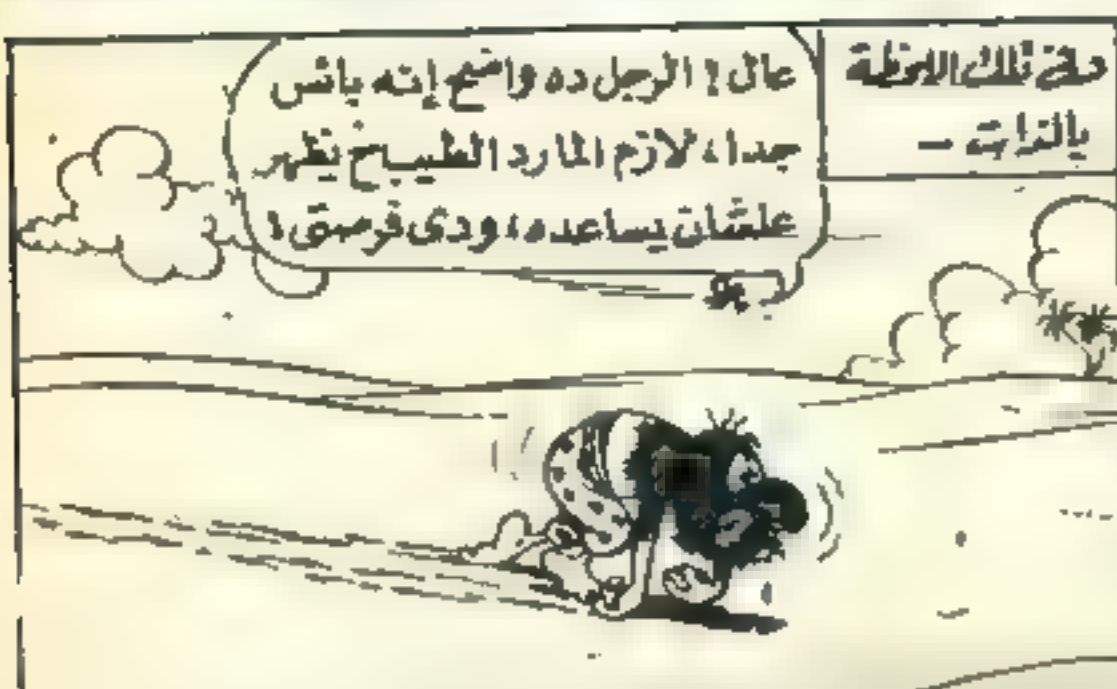 وفى تلك اللحظة
بالذات —
عال! الرجل ده واضح إنه يائس
جدا، لازم المارد الطيب يظهر
علشان يساعده، ودى فرصتى!